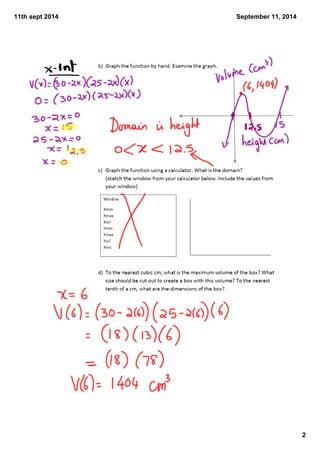 11th sept 2014
September 11, 2014
b) Graph the function by hand. Examine the graph.
x-int
V(x)=(30-2x)(25-2x)(x)
0=(30-2x)(25-2x)(x)
30-2x=0
x=15
25-2x=0
x=12.5
x=0
Domain is height
0<x<12.5
Volume (cm³)
(6,1404)
12.5
15
height (cm)
c) Graph the function using a calculator. What is the domain?
(sketch the window from your calculator below. Include the values from
your window)
Window
Xmin
Xmax
Xscl
Ymin
Ymax
Yscl
Xres
d) To the nearest cubic cm, what is the maximum volume of the box? What
size should be cut out to create a box with this volume? To the nearest
tenth of a cm, what are the dimensions of the box?
x=6
V(6)=(30-2(6))(25-2(6))(6)
=(18)(13)(6)
=(18)(78)
V(6)=1404 cm³
2